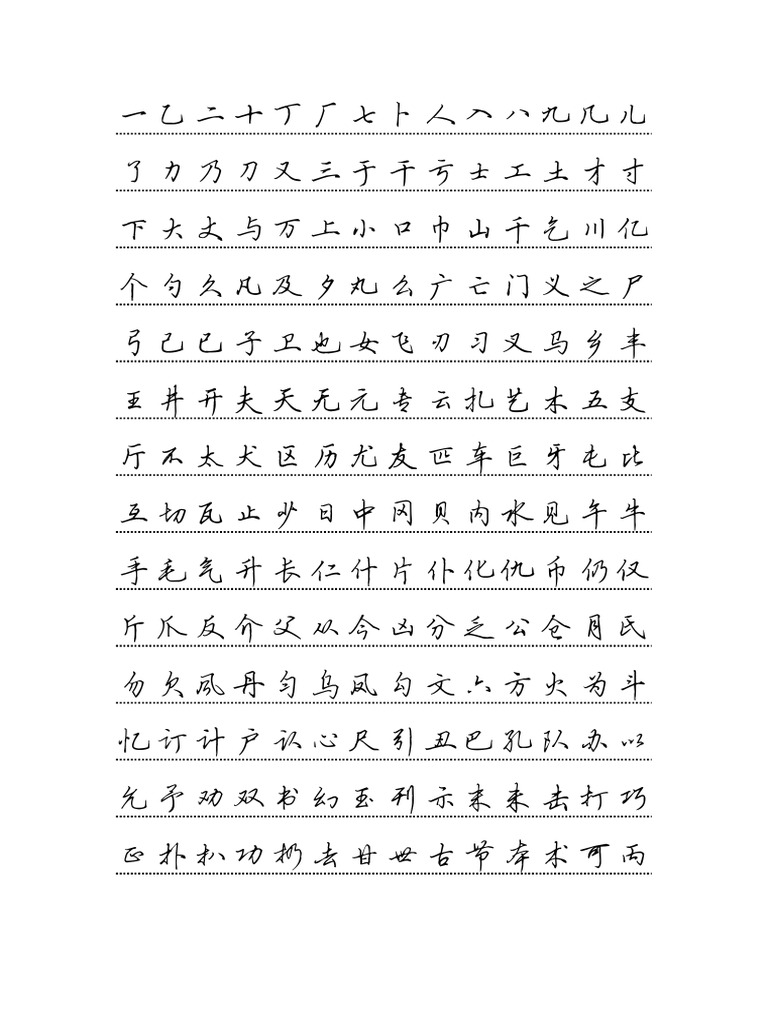 一乙二十丁厂七卜人入八九几儿
了力乃刀又三于干亏士工土才寸
下大丈与万上小口巾山千乞川亿
个勺久凡及夕丸么广亡门义之尸
弓己已子卫也女飞刃习叉马乡丰
王井开夫天无元专云扎艺木五支
厅不太犬区历尤友匹车巨牙屯比
互切瓦止少日中冈贝内水见午牛
手毛气升长仁什片仆化仇币仍仅
斤爪反介父从今凶分乏公仓月氏
勿欠风丹匀乌凤勾文六方火为斗
忆订计户认心尺引丑巴孔队办以
允予劝双书幻玉刊示末未击打巧
正扑扒功扔去甘世古节本术可丙